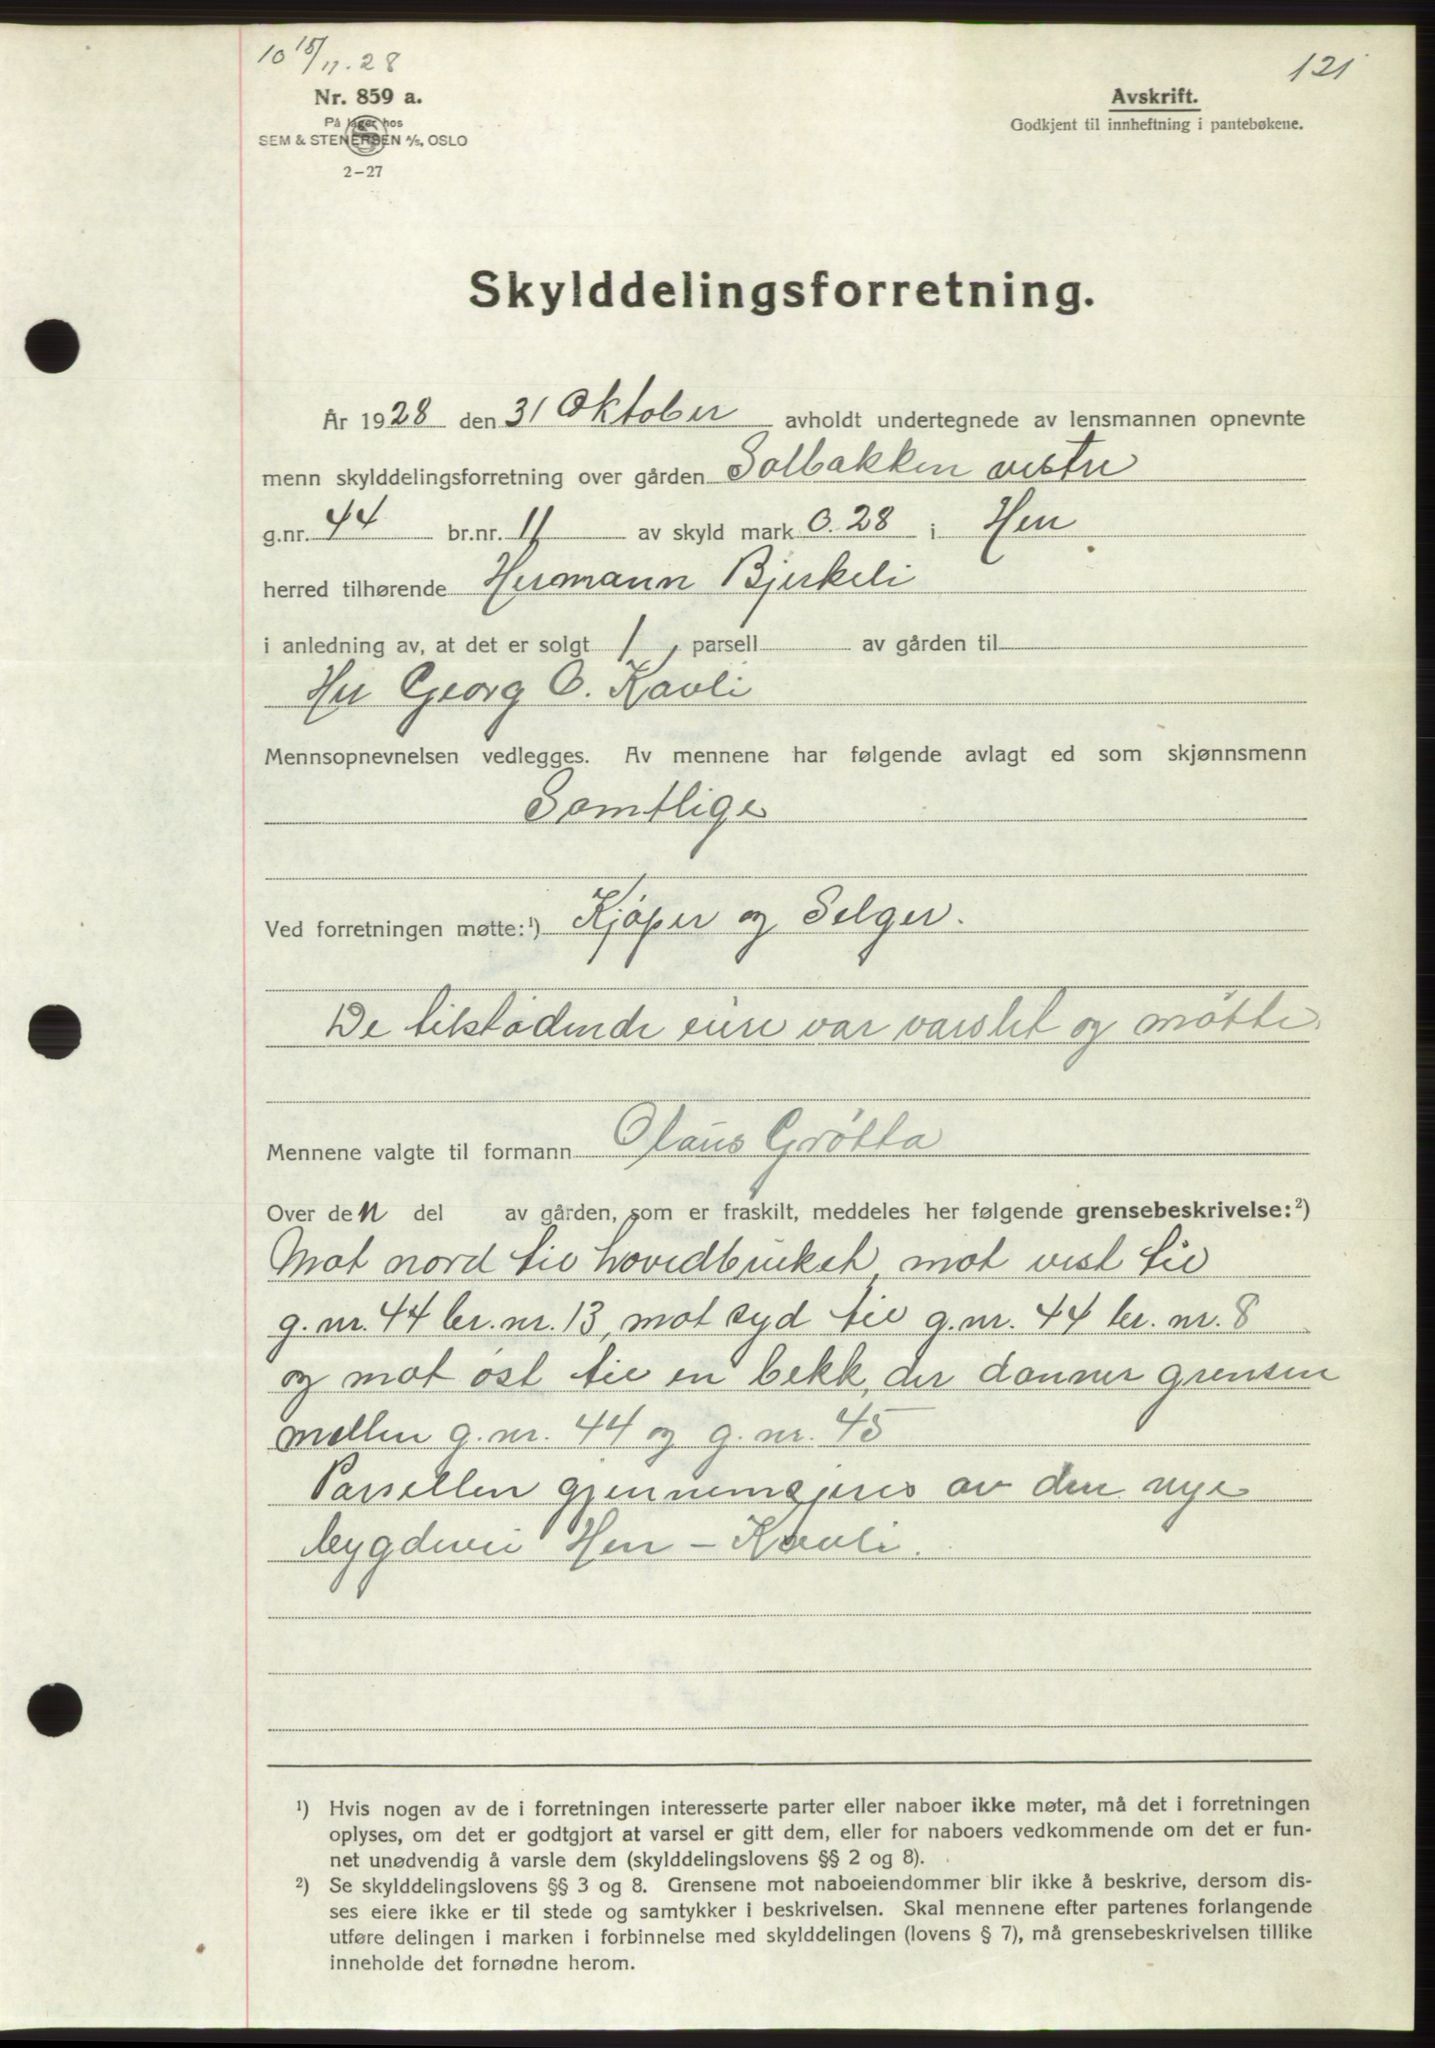 10 15/11-28
121
Nr. 859 a.
På lager hos
SEM & STENERSEN A/S, OSLO
2-27
Avskrift.
Godkjent til innheftning i pantebøkene.
Skylddelingsforretning.
År 1928 den 31 Oktober avholdt undertegnede av lensmannen opnevnte
menn skylddelingsforretning over gården Solbakken vestre
g.nr. 44 br.nr. 11 av skyld mark 0.28 i Hen
herred tilhørende Hermann Bjerkeli
i anledning av, at det er solgt 1 parsell av gården til
Her Georg O. Kavli
Mennsopnevnelsen vedlegges. Av mennene har følgende avlagt ed som skjønnsmenn
Samtlige
Ved forretningen møtte:¹) Kjøper og Selger.
De tilstødende eiere var varslet og møtte.
Mennene valgte til formann Olaus Grøtta
Over den del av gården, som er fraskilt, meddeles her følgende grensebeskrivelse:²)
Mot nord til hovedbruket, mot vest til
g.nr. 44 br.nr. 13, mot syd til g.nr. 44 br. nr. 8
og mot øst til en bekk, der danner grensen
mellen g.nr. 44 og g.nr. 45
Parsellen gjennemsjeres av den nye
bygdevei Hen - Kavli.
¹) Hvis nogen av de i forretningen interesserte parter eller naboer ikke møter, må det i forretningen
oplyses, om det er godtgjort at varsel er gitt dem, eller for naboers vedkommende om det er fun-
net unødvendig å varsle dem (skylddelingslovens §§ 2 og 8).
²) Se skylddelingslovens §§ 3 og 8. Grensene mot naboeiendommer blir ikke å beskrive, dersom dis-
ses eiere ikke er til stede og samtykker i beskrivelsen. Skal mennene efter partenes forlangende
utføre delingen i marken i forbinnelse med skylddelingen (lovens § 7), må grensebeskrivelsen tillike
inneholde det fornødne herom.